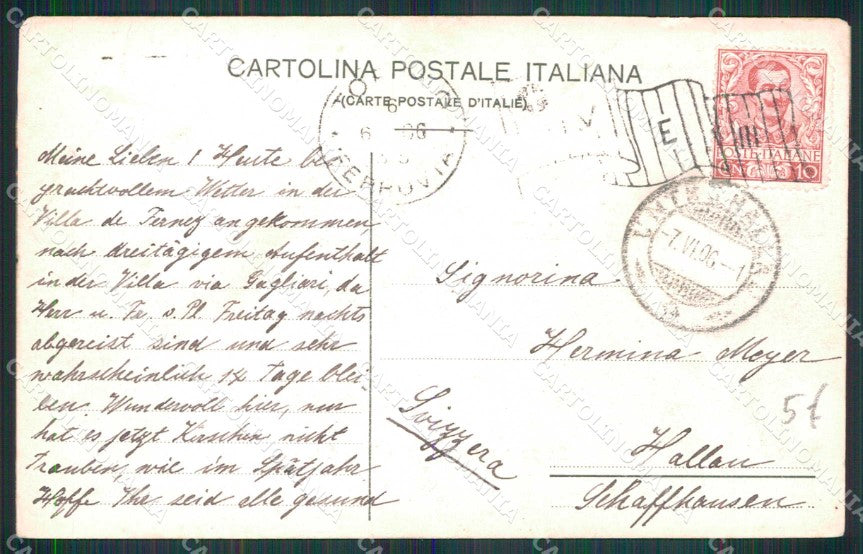 CARTOLINA POSTALE ITALIANA
(CARTE POSTALE D'ITALIE)
FERROVIA
E
POSTE ITALIANE
10
UNTERHALLAU
-7.VI.06.-1
Meine Lieben! Heute bei
prachtvollem Wetter in der
Villa de Ternez angekommen
nach dreitägigem Aufenthalt
in der Villa via Gagliari, da
Herr u. Fr. v. Pl. Freitag nachts
abgereist sind und sehr
wahrscheinlich 14 Tage blei-
ben. Wundervoll hier, nur
hat es jetzt Kirschen, nicht
Trauben, wie im Spätjahr
Hoffe Ihr seid alle gesund
Signorina
Hermina Meyer
Svizzera
Hallau
Schaffhausen
CARTOLINOMANIA